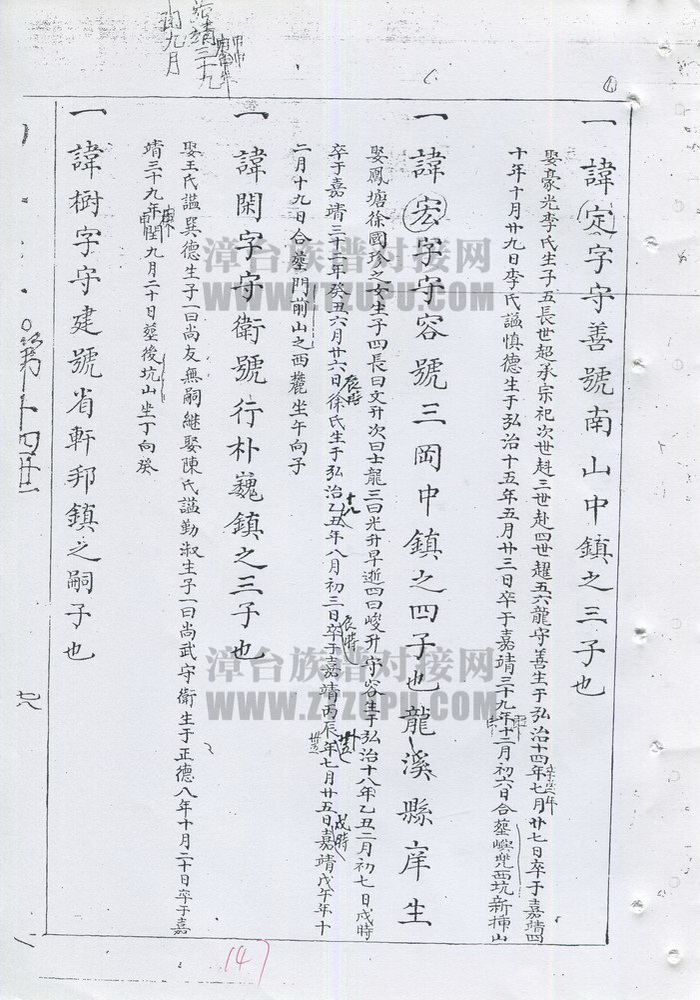 一諱定字守善號南山中鎮之三子也
娶豪光李氏生子五長世超承宗祀次世赳三世赴四世趯五六龍守善生于弘治十四年七月廿七日卒于嘉靖四
十年十月廿九日李氏謚慎德生于弘治十五年五月廿三日卒于嘉靖三十九年十二月初六日合塟嶼兜西坑新挿山
一諱宏字守容號三岡中鎮之四子也龍溪縣庠生
娶鳳塘徐國珍之女生子四長曰文升次曰士龍三曰光升早逝四曰峻升守容生于弘治十八年乙丑二月初七日戌時
卒于嘉靖三十二年癸丑六月廿六日辰時徐氏生于弘治十八乙丑年八月初三日辰時卒于嘉靖丙辰年七月廿五日戌時嘉靖戊午年十
二月十九日合塟門前山之西麓坐午向子
一諱閑字守衛號行朴巍鎮之三子也
娶王氏謚巽德生子一曰尚友無嗣継娶陳氏謚勤淑生子一曰尚武守衛生于正德八年十月二十日卒于嘉
靖三十九年閏九月二十日塟後坑山坐丁向癸
一諱樹字守建號省軒邦鎮之嗣子也
嘉靖三十九
閏九月
第十四世
147
漳台族谱对接网
WWW.ZTZUPU.COM
漳台族谱对接网
WWW.ZTZUPU.COM